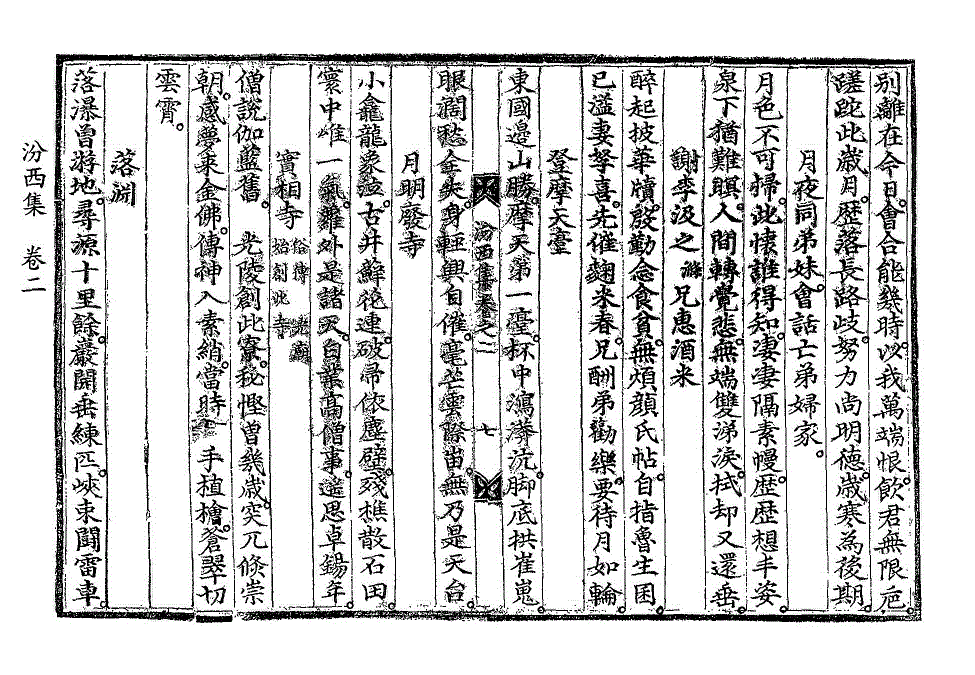 别離在今日。會合能幾時。以我萬端恨。飮君無限巵。
蹉跎此歲月。歷落長路歧。努力尚明德。歲寒為後期。
月夜同弟妹會話亡弟婦家。
月色不可掃。此懷誰得知。凄凄隔素幔。歷歷想丰姿。
泉下猶難瞑。人間轉覺悲。無端雙涕淚。拭却又還垂。
謝李汲之 兄惠酒米
醉起披華牘。殷勤念食貧。無煩顏氏帖。自指魯生囷。
已溢妻孥喜。先催麴米春。兄酬弟勸樂。要待月如輪。
登摩天臺
東國邊山勝。摩天第一臺。杯中鴻漭沆。脚底拱崔嵬。
眼闊愁全失。身輕興自催。毫芒雲際苗。無乃是天台。
汾西集卷之二 七
月明廢寺
小龕龍象泣。古井蘚從連。破帚依塵壁。殘樵散石田。
寰中惟一氣。籬外是諸天。白業高僧事。遙思卓錫年。
實相寺
僧說伽藍舊。 光陵創此寮。秘慳曾幾歲。突兀倐崇
朝。感夢來金佛。傳神入素綃。當時手植檜。蒼翠切
雲霄。
落淵
落瀑曾游地。尋源十里餘。巖開垂練匹。峽束鬪雷車。
汾西集 卷二